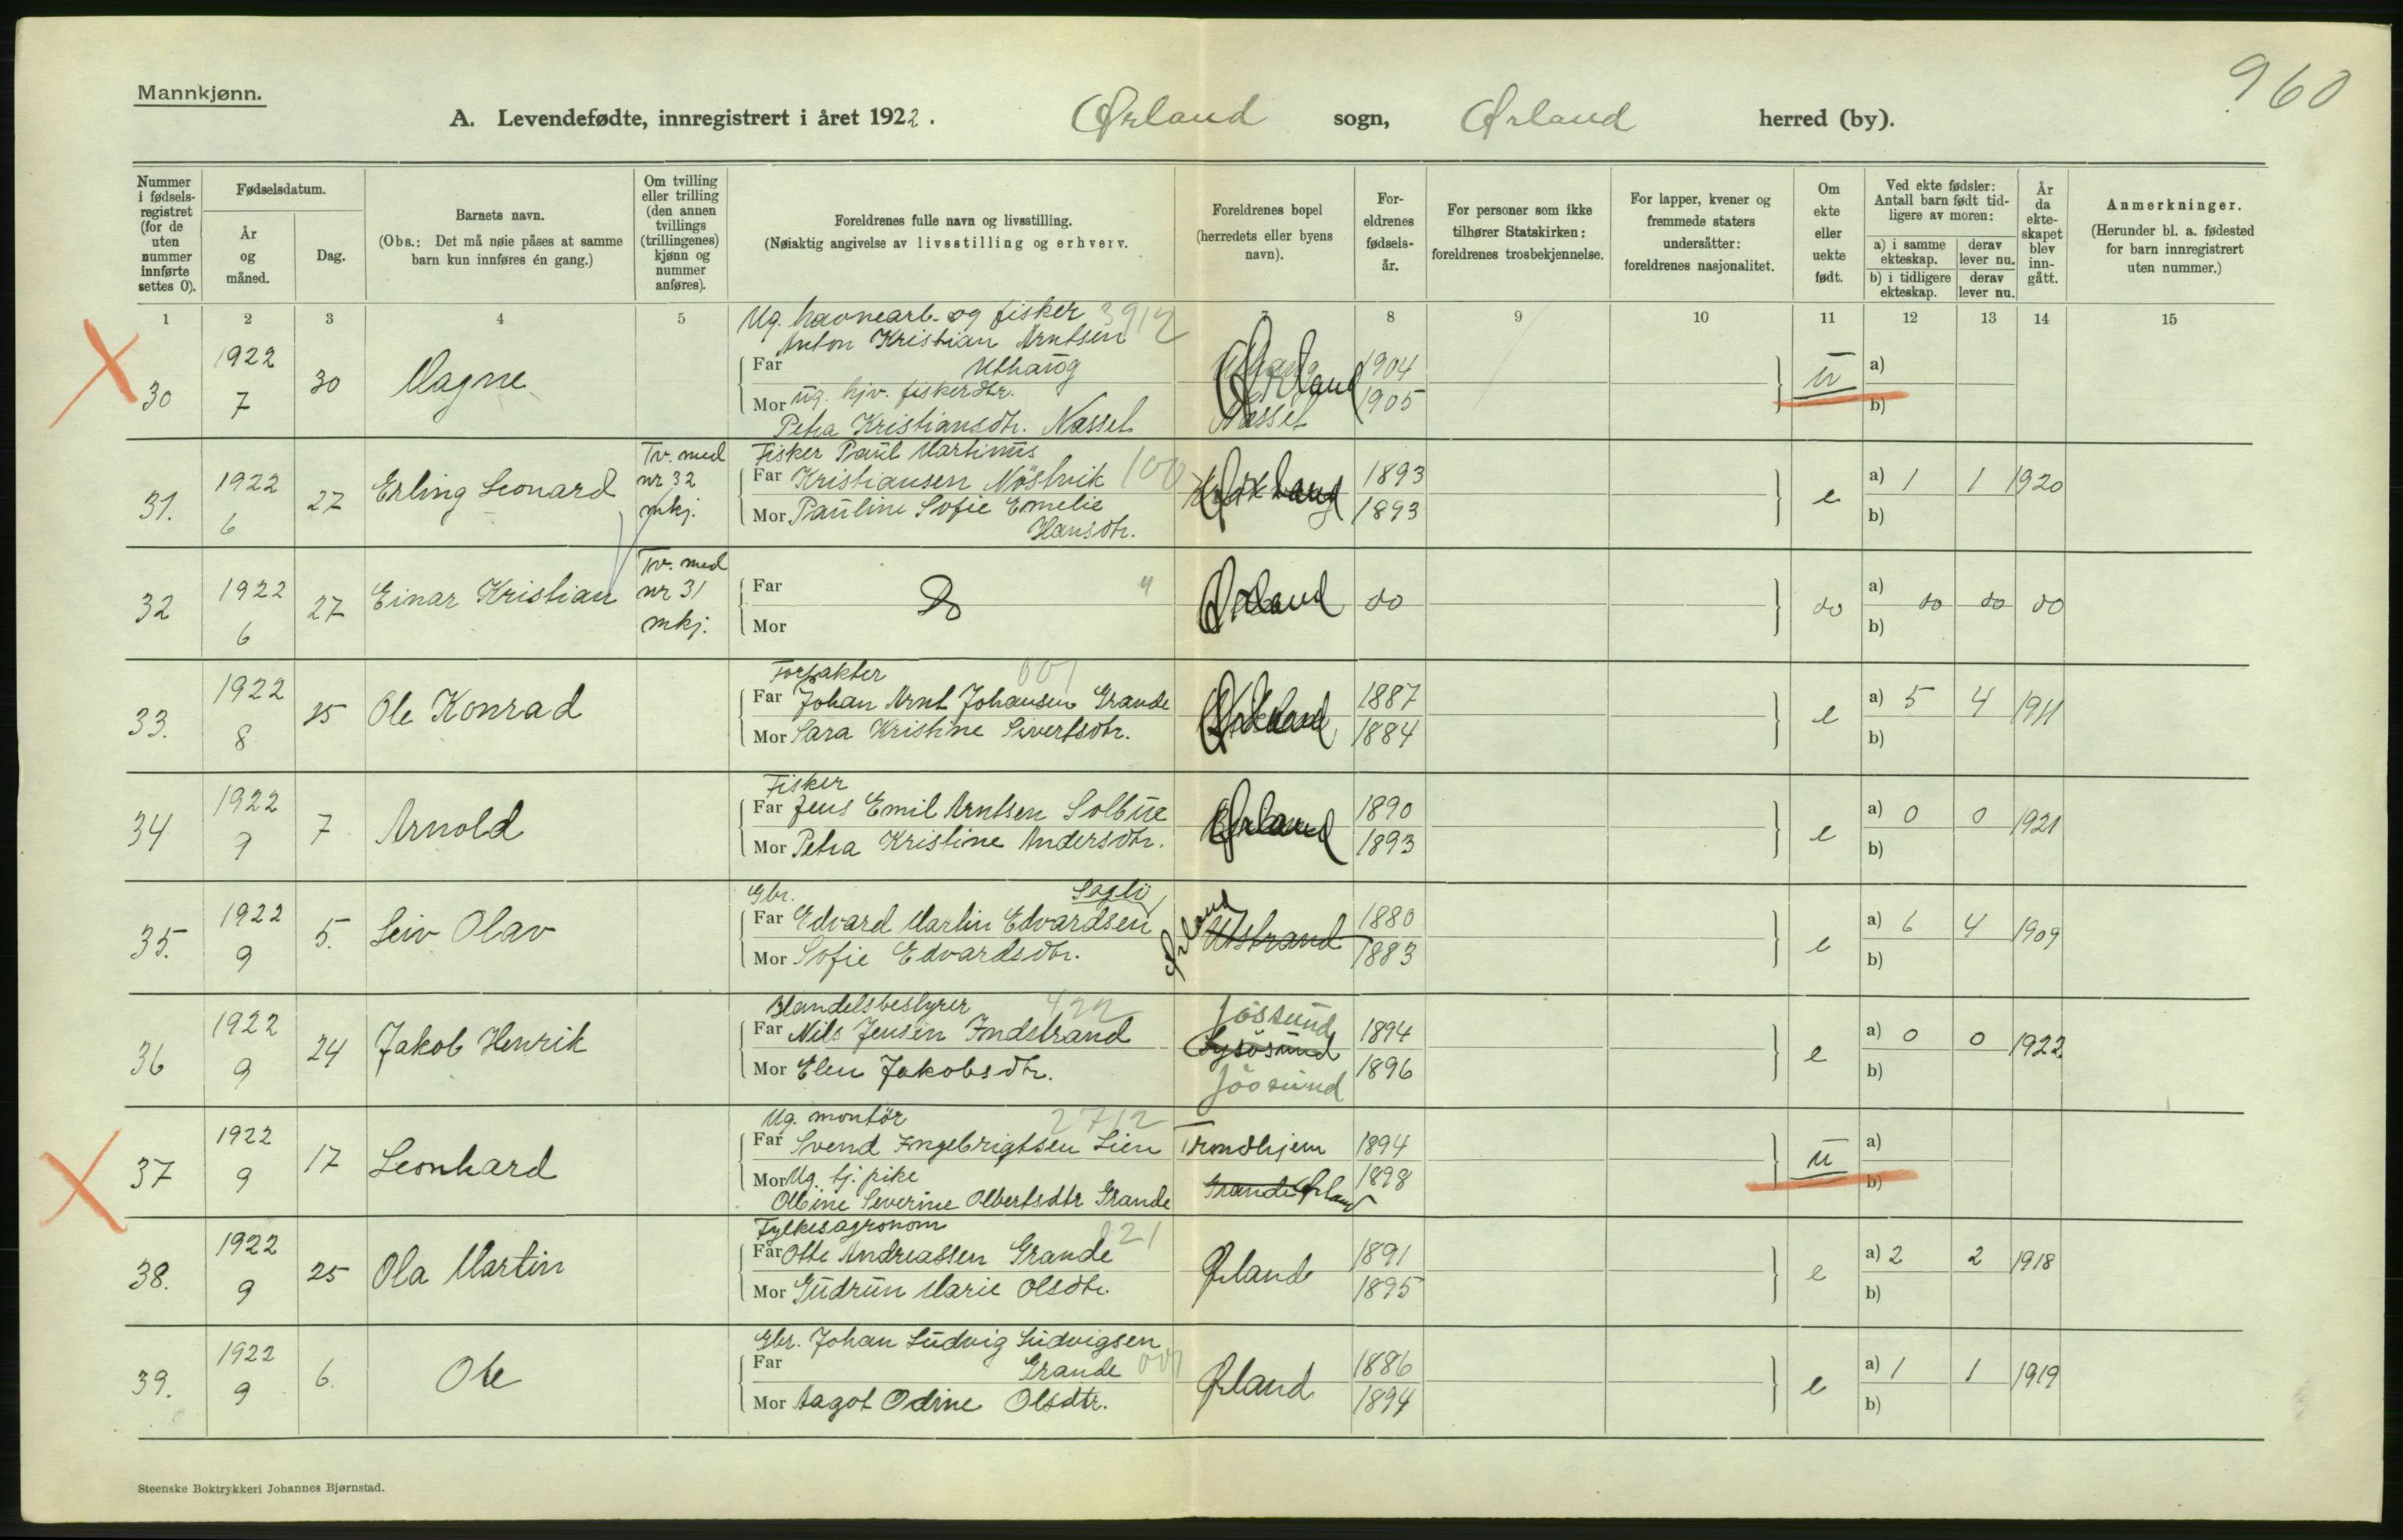 960
Mannkjønn.
A. Levendefødte, innregistrert i året 1922. Ørland sogn, Ørland herred (by).
Nummer i fødsels-registret (for de uten nummer innførte settes 0).
Fødselsdatum.
År og måned.
Dag.
Barnets navn.
(Obs.: Det må nøie påses at samme barn kun innføres én gang.)
Om tvilling eller trilling (den annen tvillings (trillingenes) kjønn og nummer anføres).
Foreldrenes fulle navn og livsstilling.
(Nøiaktig angivelse av livsstilling og erhverv.
Foreldrenes bopel (herredets eller byens navn).
For-eldrenes fødsels-år.
For personer som ikke tilhører Statskirken: foreldrenes trosbekjennelse.
For lapper, kvener og fremmede staters undersåtter: foreldrenes nasjonalitet.
Om ekte eller uekte født.
Ved ekte fødsler: Antall barn født tid-ligere av moren:
a) i samme ekteskap.
derav lever nu.
b) i tidligere ekteskap.
derav lever nu.
År da ekte-skapet blev inn-gått.
Anmerkninger.
(Herunder bl. a. fødested for barn innregistrert uten nummer.)
1 2 3 4 5 7 8 9 10 11 12 13 14 15
Ug. havnearb. og fisker 3912
Anton Kristian Arntsen
30 1922 7 30 Magne Far Uthaug 1904 u a)
Mor ug. hjv. fiskerdtr. Ørland 1905 b)
Petra Kristiansdtr. Næsset Næsset
Tv. med nr 32 mkj. Fisker Paul Martinus
31. 1922 6 27 Erling Leonard Far Kristiansen Nöstvik 100 1893 e a) 1 1 1920
Mor Pauline Sofie Emelie Hansdtr. 1893 b)
32 1922 6 27 Einar Kristian Tv. med nr 31 mkj. Far Do " Ørland do do a) do do do
Mor b)
Forpakter 001
33. 1922 8 25 Ole Konrad Far Johan Arnt Johansen Grande Ørland 1887 e a) 5 4 1911
Mor Sara Kristine Sivertsdtr. 1884 b)
Fisker
34 1922 9 7 Arnold Far Jens Emil Arntsen Solbue Ørland 1890 e a) 0 0 1921
Mor Petra Kristine Andersdtr. 1893 b)
Gbr. Sagli
35. 1922 9 5. Leiv Olav Far Edvard Martin Edvardsen Ørland Utstrand 1880 e a) 6 4 1909
Mor Sofie Edvardsdtr. 1883 b)
Handelsbestyrer 422 Jössund
36 1922 9 24 Jakob Henrik Far Nils Jensen Indstrand Lysösund 1894 e a) 0 0 1922
Mor Elen Jakobsdtr. Jössund 1896 b)
Ug. montör 2712
37 1922 9 17 Leonhard Far Svend Ingebrigtsen Lien Trondhjem 1894 u a)
Mor Ug. tj. pike 1898 b)
Olbine Severine Olbertsdtr Grande Grande Ørland
Fylkesagronom 021
38. 1922 9 25 Ola Martin Far Otte Andreassen Grande Ørland 1891 e a) 2 2 1918
Mor Gudrun Marie Olsdtr. 1895 b)
Gbr. Johan Ludvig Ludvigsen
39. 1922 9 6. Ole Far Grande 001 Ørland 1886 e a) 1 1 1919
Mor Aagot Odine Olsdtr. 1894 b)
Steenske Boktrykkeri Johannes Bjørnstad.